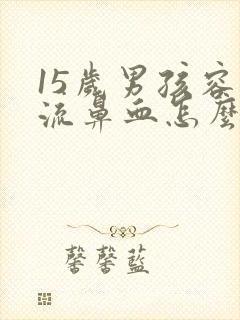 15歲男孩容
流鼻血怎麼
馨馨藍